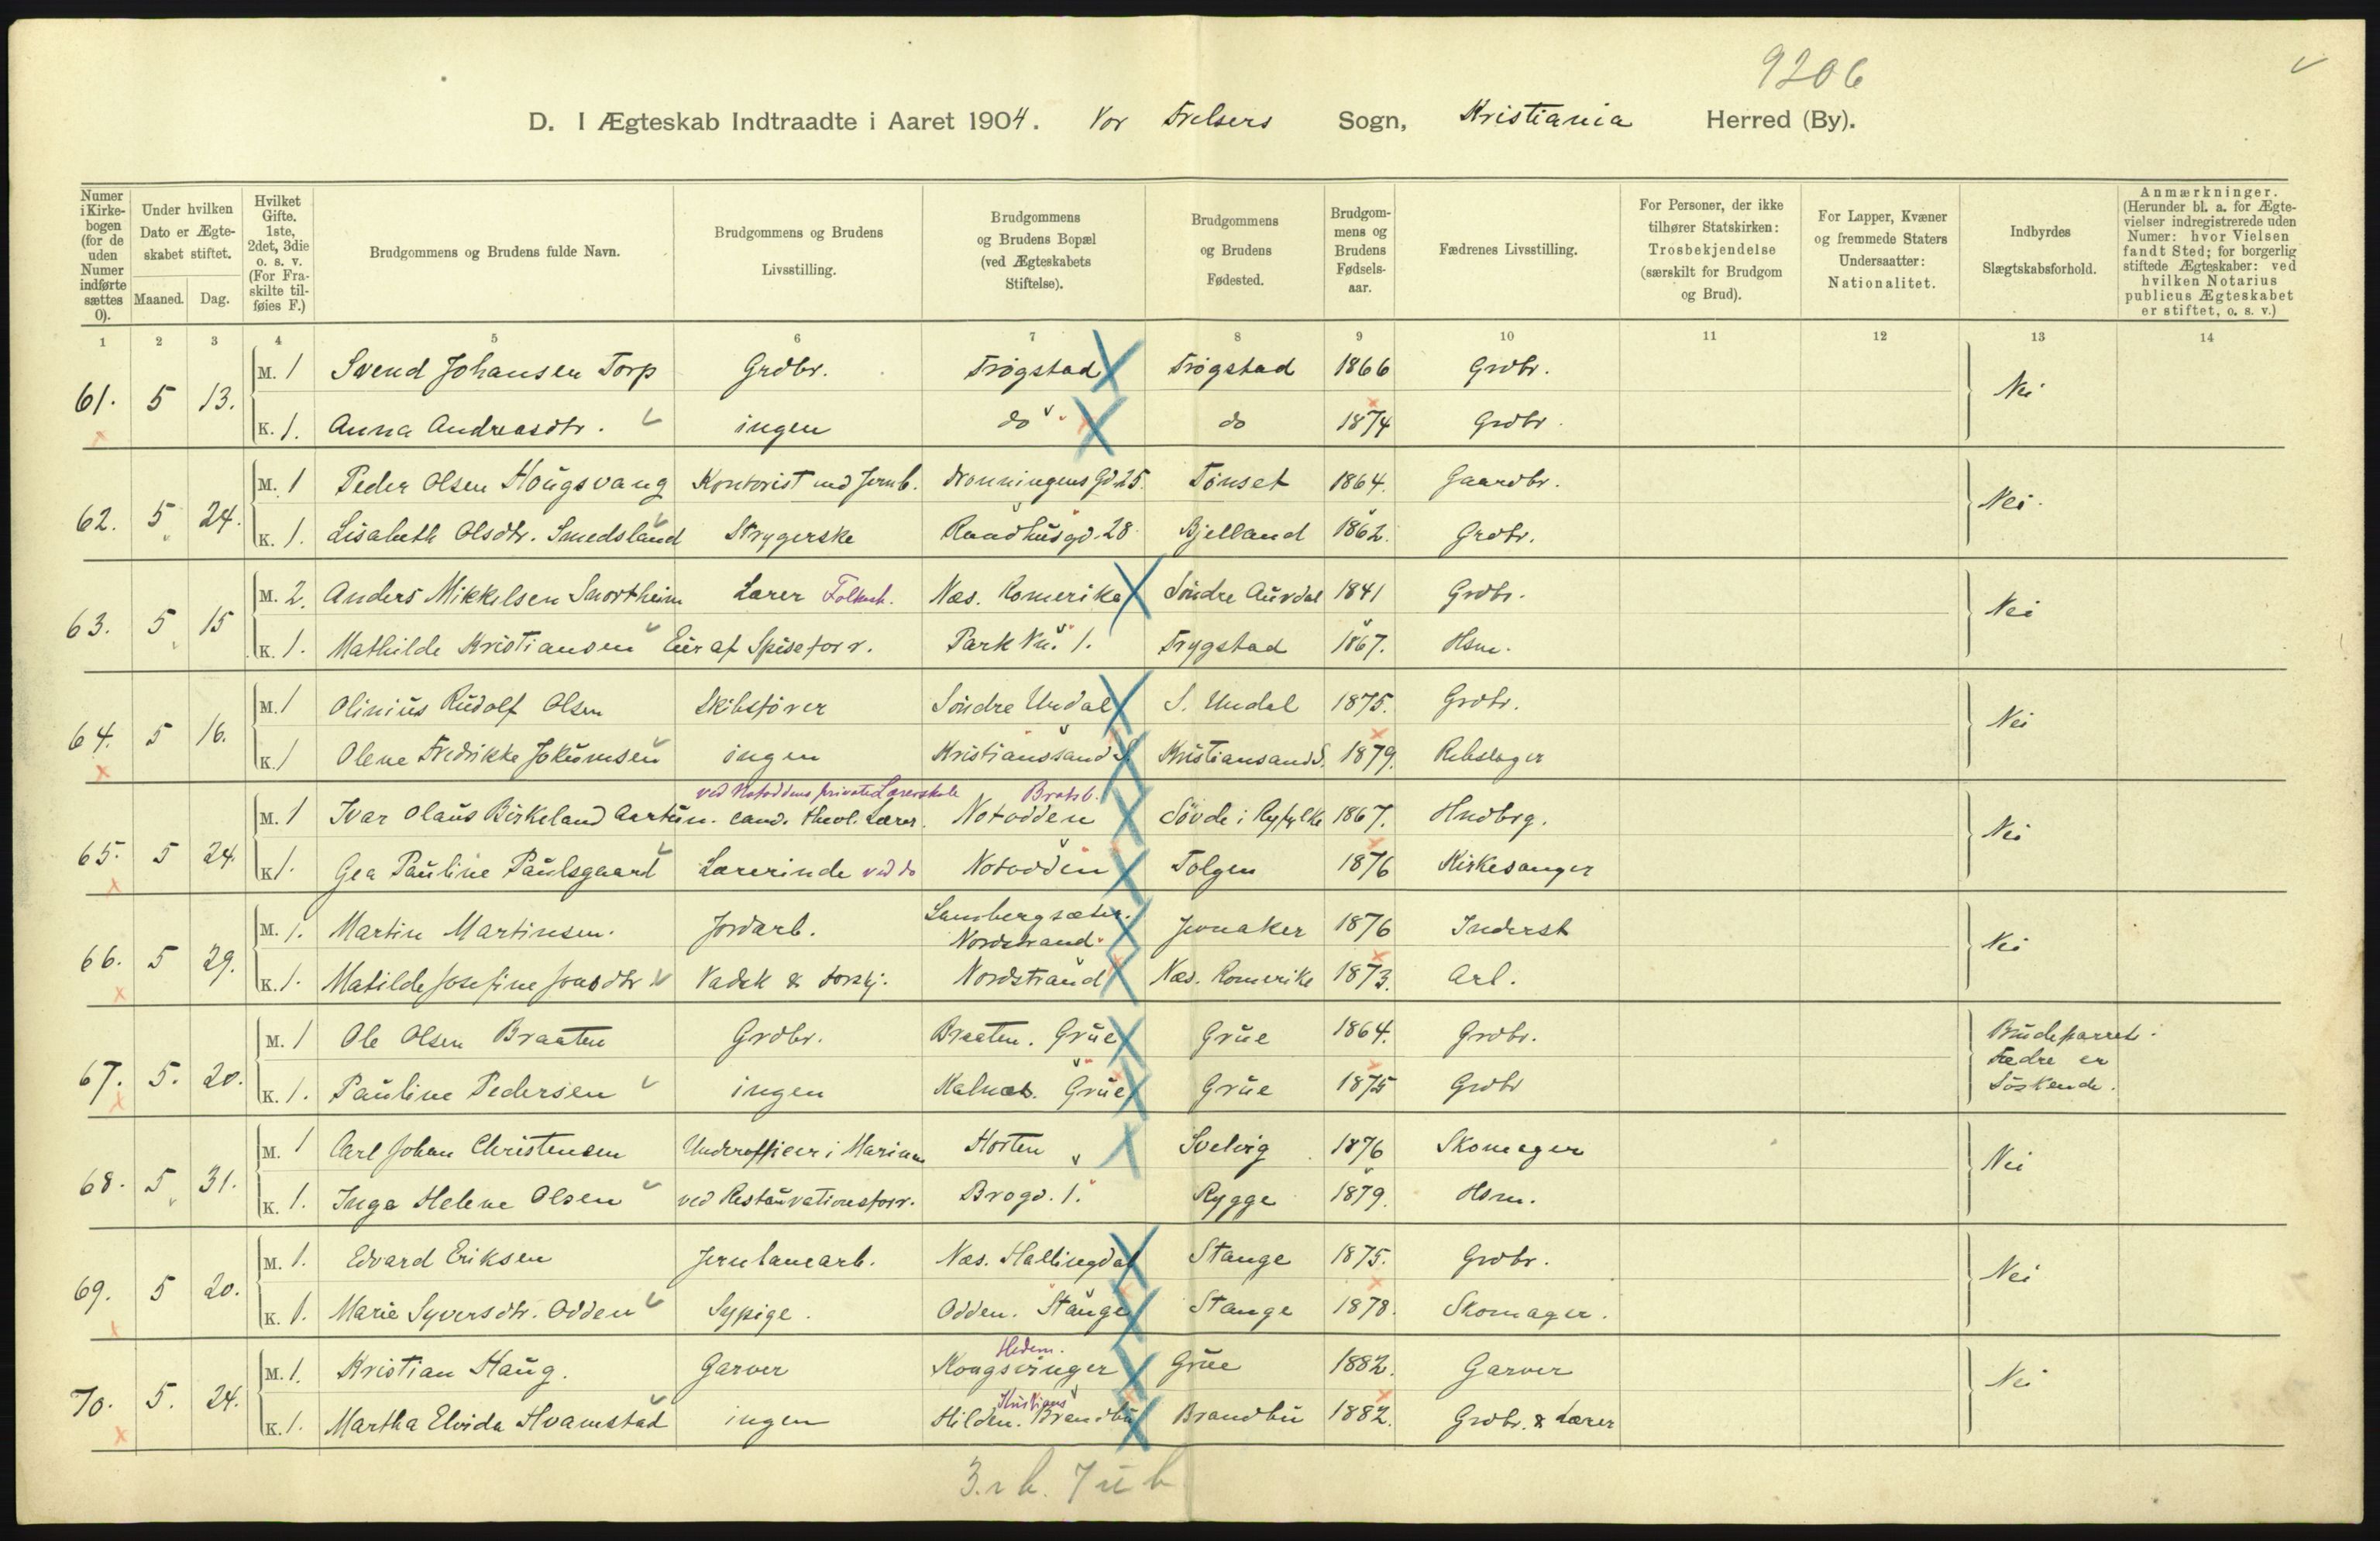 9206
D. I Ægteskab Indtraadte i Aaret 1904. Vor Frelsers Sogn, Kristiania Herred (By).
Numer i Kirkebogen (for de uden Numer indførte sættes 0).
Under hvilken Dato er Ægteskabet stiftet.
Maaned. Dag.
Hvilket Gifte. 1ste, 2det, 3die o. s. v. (For Fraskilte tilføies F.)
Brudgommens og Brudens fulde Navn.
Brudgommens og Brudens Livsstilling.
Brudgommens og Brudens Bopæl (ved Ægteskabets Stiftelse).
Brudgommens og Brudens Fødested.
Brudgommens og Brudens Fødselsaar.
Fædrenes Livsstilling.
For Personer, der ikke tilhører Statskirken: Trosbekjendelse (særskilt for Brudgom og Brud).
For Lapper, Kvæner og fremmede Staters Undersaatter: Nationalitet.
Indbyrdes Slægtskabsforhold.
Anmærkninger. (Herunder bl. a. for Ægtevielser indregistrerede uden Numer: hvor Vielsen fandt Sted; for borgerlig stiftede Ægteskaber: ved hvilken Notarius publicus Ægteskabet er stiftet, o. s. v.)
1 2 3 4 5 6 7 8 9 10 11 12 13 14
61. 5 13. M. 1 Svend Johansen Torp Grdbr. Trøgstad Trøgstad 1866 Grdbr. Nei
K. 1. Anna Andreasdtr. ingen do do 1874 Grdbr.
62. 5 24. M. 1 Peder Olsen Hougsvang Kontorist ved Jernb. Dronningens Gd. 25. Tønset 1864. Gaardbr. Nei.
K. 1. Lisabeth Olsdtr. Smedsland Strygerske Raadhusgd. 28 Bjelland 1862. Grdbr.
63. 5 15 M. 2. Anders Mikkelsen Snortheim Lærer Folkesk. Næs. Romerike Søndre Aurdal 1841 Grdbr. Nei
K. 1. Mathilde Kristiansen Eier af Spiseforr. Parkv. 1. Trygstad 1867. Hsm.
64. 5 16. M. 1 Olinius Rudolf Olsen Skibsfører Søndre Undal S. Undal 1875. Grdbr. Nei
K. 1 Olene Fredrikke Jokumsen ingen Kristianssand S. Kristiansand S. 1879. Rebslager
ved Notoddens private Lærerskole Bratsb.
65. 5 24 M. 1 Ivar Olaus Birkeland Aartun. cand. theol. Lærer. Notodden Søvde i Ryfylke 1867. Hndbrg. Nei
K. 1. Gea Pauline Paulsgaard Lærerinde ved do Notodden Tolgen 1876 Kirkesanger
66. 5 29. M. 1. Martin Martinsen. Jordarb. Lambergsæter. Nordstrand. Jevnaker 1876 Inderst Nei
K. 1. Matilde Josefine Jonsdtr Vadsk & forskj. Nordstrand Næs. Romerike 1873. Arb.
67. 5. 20. M. 1 Ole Olsen Braaten Grdbr. Braaten. Grue Grue 1864. Grdbr. Brudeparrets Fædre er Søskende.
K. 1. Pauline Pedersen ingen Kalnæs. Grue Grue 1875 Grdbr
68. 5 31. M. 1 Carl Johan Christensen Underofficer i Marinen Horten Svelvig 1876 Skomager Nei
K. 1. Inga Helene Olsen ved Restaurationsforr. Brogd. 1. Rygge 1879. Hsm.
69. 5 20. M. 1. Edvard Eriksen Jernbanearb. Næs. Hallingdal Stange 1875. Grdbr. Nei
K. 1. Marie Syversdtr. Odden Sypige. Odden. Stange Stange 1878. Skomager.
Hedem.
70. 5. 24. M. 1. Kristian Haug. Garver Kongsvinger Grue 1882. Garver Nei
Kristians
K. 1. Martha Elvida Hvamstad ingen Hilden. Brandbu Brandbu 1882. Grdbr. & Lærer
3. r b. 7 u b